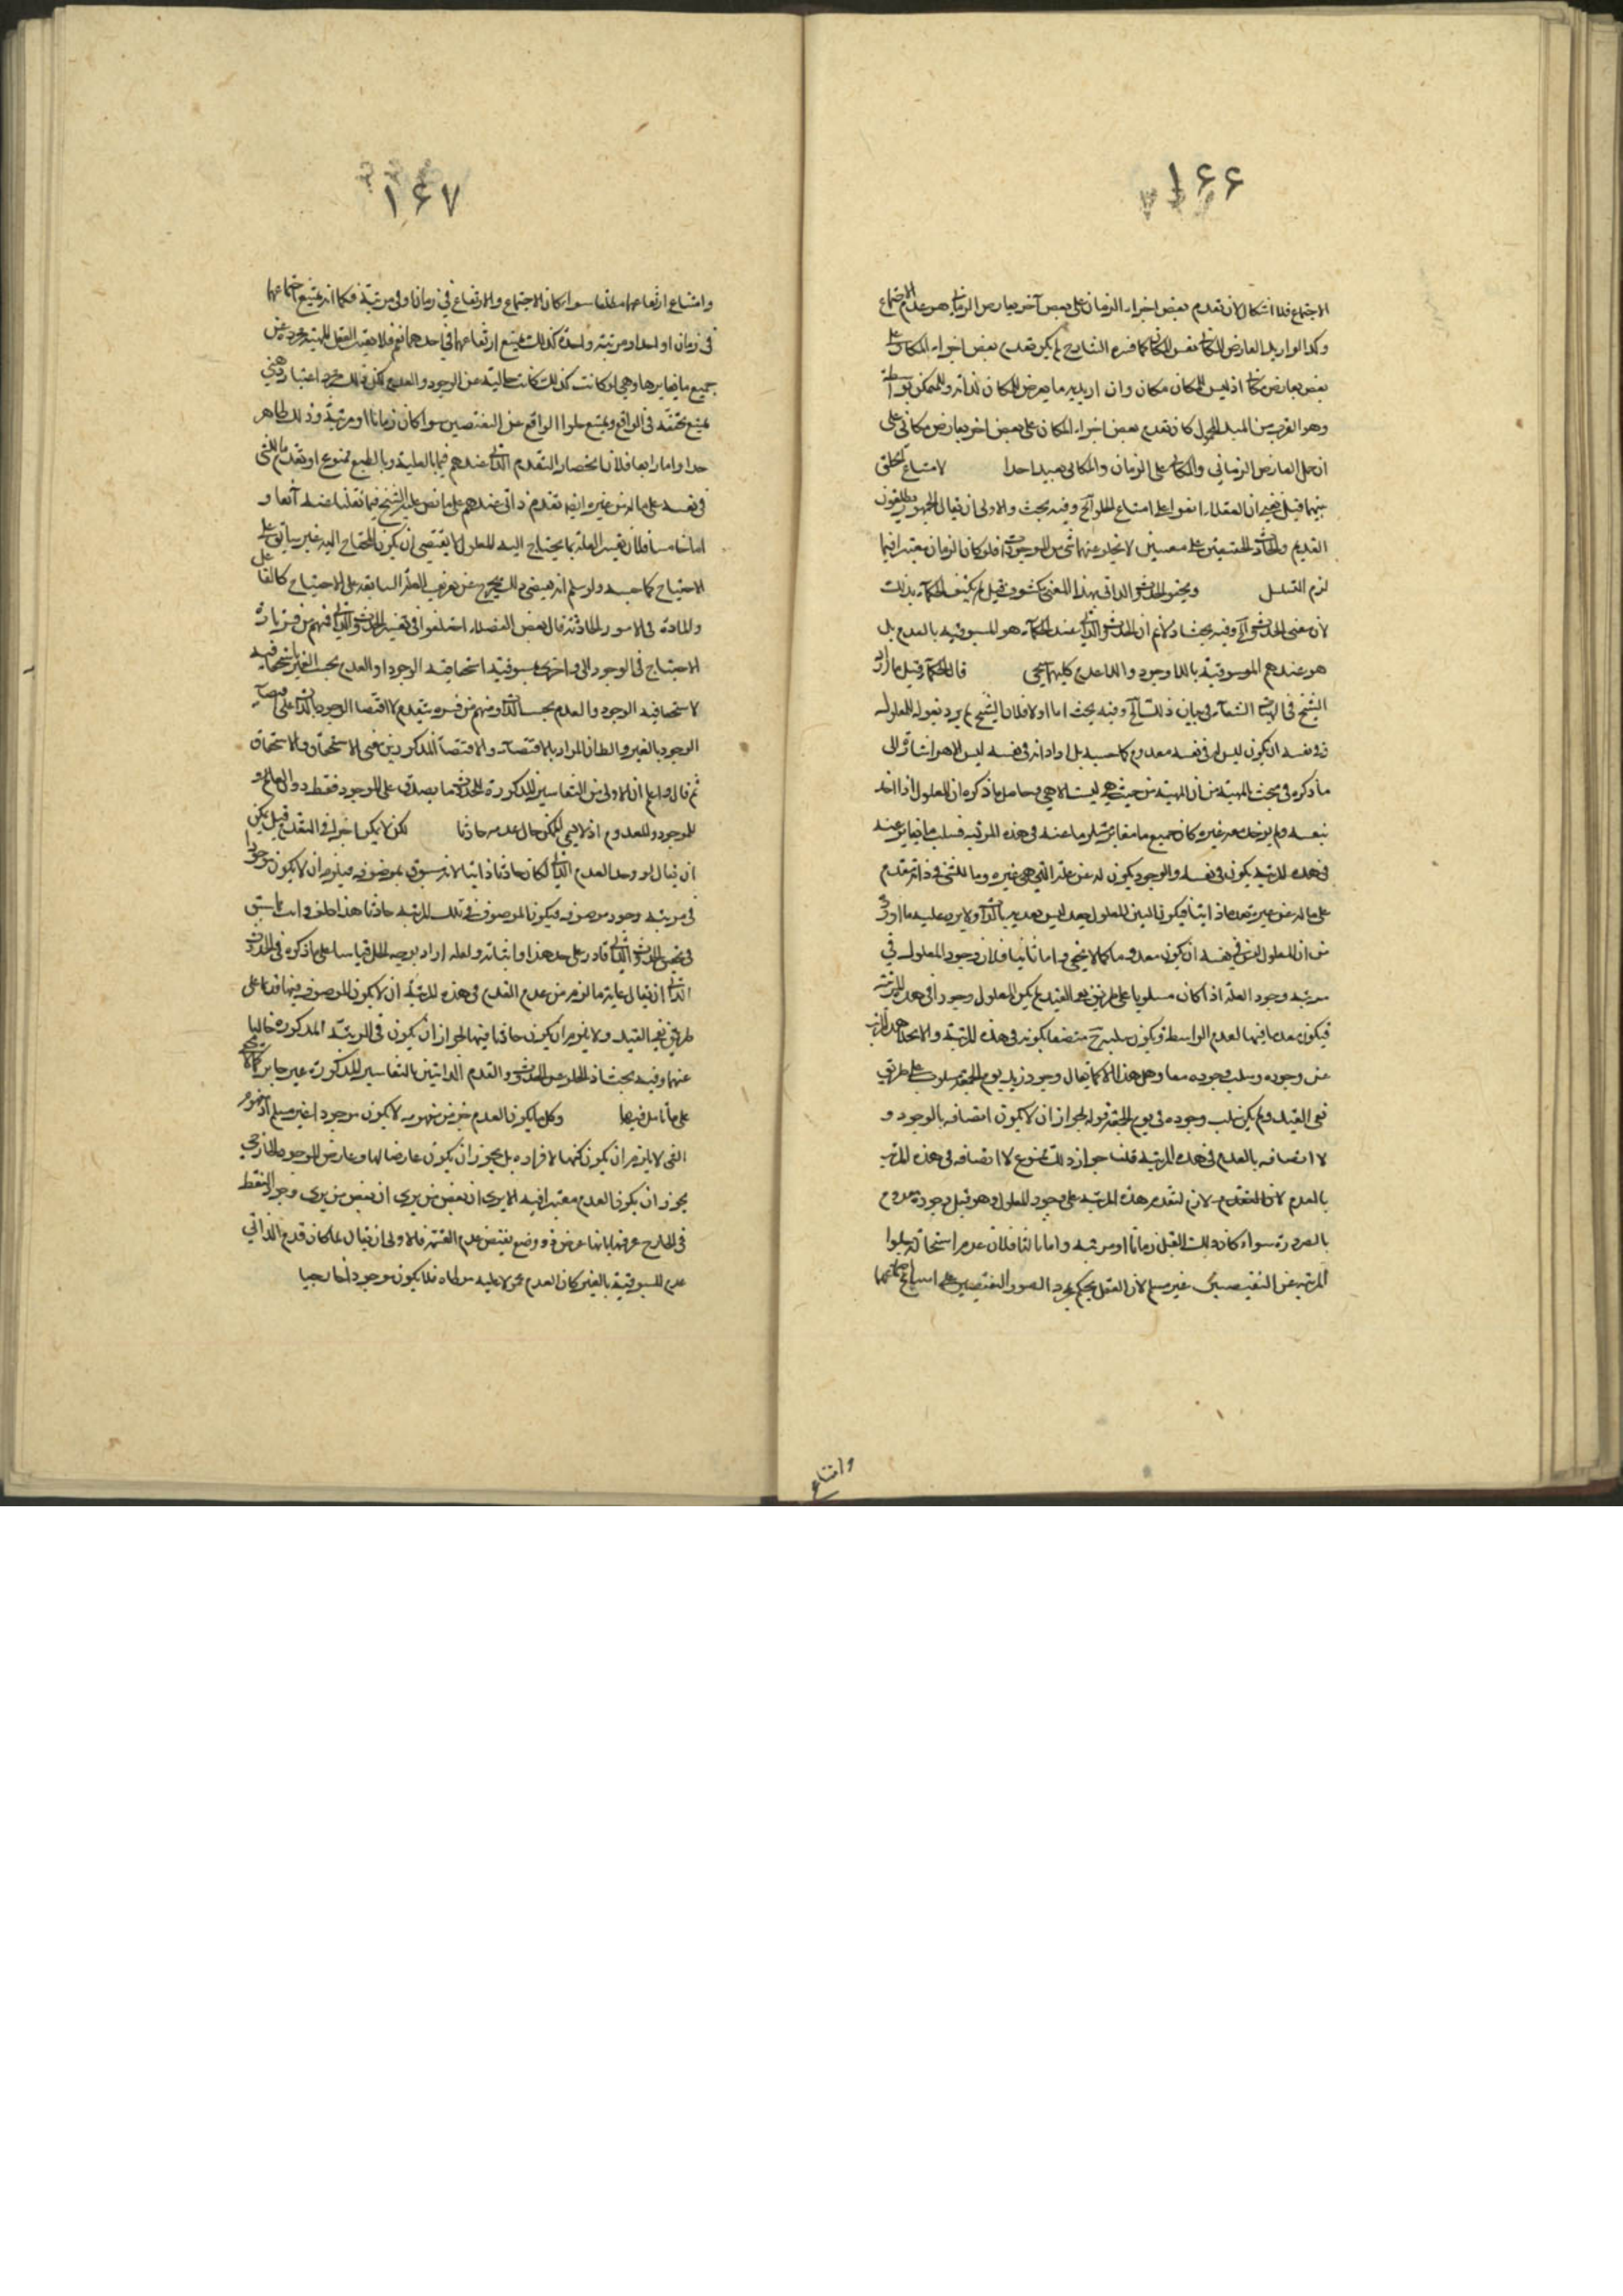 ۱۶۶
الاجتماع فلا اشكال لان تقدم بعض اجزاء الزمان على بعض آخر بعارض الزمان هو عدم الاجتماع
وكذا لو اريد العارض المكان نفس المكان كما فسره الشارح لم يكن تقدم بعض اجزاء المكان على
بعض بعارض مكان اذ ليس للمكان مكان وان اريد به ما يعرض المكان لذاته وللممكن بواسطة
وهو القرب من المبدأ كان تقدم بعض اجزاء المكان على بعض اخر بعارض مكانى على
ان حمل العارض الزمانى والمكانى على الزمان والمكان بعيد جدا لامتناع الخلو
بينهما قيل فيه ان العقلاء اتفقوا على امتناع الخلو آلخ وفيه بحث والاولى ان يقال الجمهور يطلقون
القديم والحادث على معنيين لا يخلو عنهما شىء من الموجودات فلو كان الزمان معتبرا فيهما
لزم التسلسل وتحقق الحدوث الذاتى بهذا المعنى مكشوف قيل لم يكتف الحكماء بذلك
لان معنى الحدوث آلخ وفيه بحث اذ لا نم ان الحدوث الذاتى عند الحكماء هو المسبوقية بالعدم بل
هو عندهم المسبوقية باللاوجود واللاعدم كليهما كما يجىء قال الحكماء قيل ما اراد
الشيخ فى الهيات الشفاء فى بيان ذلك آلخ وفيه بحث اما اولا فلان الشيخ لم يرد بقوله للمعلول
فى نفسه ان يكون ليس انه فى نفسه معدوم كما حسبه بل اراد انه فى نفسه ليس الا هو اشارة الى
ما ذكره فى مبحث المهية من ان المهية من حيث هى ليست الا هى وحاصل ما ذكره ان المعلول اذا اخذ
بنفسه ولم يؤخذ معه غيره كان جميع ما يغايره مسلوبا عنه فى هذه المرتبة فسلب ما يغايره عنه
فى هذه المرتبة يكون له فى نفسه والوجود يكون له عن علته التى هى غيره وما للشىء فى ذاته متقدم
على ما له عن غيره تقدما ذاتيا فيكون ليس للمعلول بعد ليس بعدية بالذات ولا يرد عليه ما اورد
من ان المعلول ليس فى نفسه ان يكون معدوما كما لا يخفى واما ثانيا فلان وجود المعلول فى
مرتبة وجود العلة اذا كان مسلوبا على طريق نفى المقيد لم يكن المعلول موجودا فى هذه المرتبة
فيكون معدوما فيها لعدم الواسطة ويكون سلبه ح متصفا بكونه فى هذه المرتبة والا لخلا هذه المرتبة
عن وجوده وسلب وجوده معا وهل هذا الا كما يقال وجود زيد يوم الجمعة مسلوب على طريق
نفى المقيد ولم يكن سلب وجوده فى يوم الجمعة قوله لجواز ان لا يكون اتصافه بالوجود و
لا اتصافه بالعدم فى هذه المرتبة قلنا جواز ذلك ممنوع لا اتصافه فى هذه المرتبة
بالعدم لازم لتقدم هذه المرتبة على وجود المعلول وهو قبل وجوده معدوم
بالضرورة سواء كان ذلك القبل زمانا او مرتبة واما ثالثا فلان عدم استحالة خلو
المرتبة عن النقيضين غير مسلم لان العقل يحكم بمجرد تصور النقيضين على امتناع اجتماعهما
وامتناع
۱۶۷
وامتناع ارتفاعهما مطلقا سواء كان الاجتماع والارتفاع فى زمان او فى مرتبة فكما انه يمتنع اجتماعهما
فى زمان واحد او مرتبة واحدة كذلك يمتنع ارتفاعهما فى احدهما نعم قد يعتبر العقل المهية مجردة عن
جميع ما يغايرها وهى لو كانت كذلك كانت خالية عن الوجود والعدم لكن ذلك مجرد اعتبار ذهنى
يمتنع تحققه فى الواقع ويمتنع خلو الواقع عن النقيضين سواء كان زمانا او مرتبة وذلك ظاهر
جدا واما رابعا فلان انحصار التقدم الذاتى عندهم فيما بالعلية وبالطبع ممنوع او تقدم ما للشىء
فى نفسه على ما له من غيره ايضا تقدم ذاتى عندهم على ما نص عليه الشيخ فيما نقلنا عنه آنفا و
اما خامسا فلان تفسير العلة بما يحتاج اليه المعلول لا يقتضى ان يكون المحتاج اليه غير سابق على
الاحتياج كما حسبه ولو سلم انه يقتضى ذلك يخرج عن تعريف العلة السابقة على الاحتياج كالفاعل
والمادة فى الامور الحادثة قال بعض الفضلاء اختلفوا فى تفسير الحدوث الذاتى فمنهم من فسره
الاحتياج فى الوجود الى واخرى بمسبوقية استحقاقية الوجود او العدم بحسب الغير باستحقاقية
لا استحقاقية الوجود والعدم بحسب الذات ومنهم من فسره بتقدم لا اقتضاء الوجود بالذات على اقتضاء
الوجود بالغير والظاهر ان المراد بالاقتضاء واللااقتضاء المذكورين معنى الاستحقاق واللااستحقاق
ثم قال واعلم ان الاولى من التفاسير المذكورة للحدوث ما يصدق على الموجود فقط دون
الموجود والمعدوم اذ لا يسمى الممكن حال عدمه حادثا لكن لا يكونا جزأ فى التقدم قيل يمكن
ان يقال لو وجد العدم الذاتى لكان حادثا ذاتيا لانه مسبوق بموصوفه فيلزم ان لا يكون موجودا
فى مرتبة وجود موصوفه فيكون الموصوف فى تلك المرتبة حادثا هذا خلف وانت بما سبق
فى تحقيق الحدوث الذاتى قادر على هذا واثباته ولعله اراد بوجه الخلل قياسا على ما ذكره فى الحدوث
الذاتى ان يقال غاية ما لزم من عدم القدم فى هذه المرتبة ان لا يكون الموصوف فيها قديما على
طريق نفى المقيد ولا يلزم ان يكون حادثا فيها لجواز ان يكون فى المرتبة المذكورة خاليا
عنهما وفيه بحث اذ الخلو عن الحدوث والقدم الذاتيين بالتفاسير المذكورة غير جايز كما لا يخفى
على من تامل فيها وكل ما يكون العدم جزء من مفهومه لا يكون موجودا غير مسلم اذ مفهوم
الشىء لا يلزم ان يكون كنها لافراده بل يجوز ان يكون عارضا لها وعارض الموجود الخارجى
يجوز ان يكون العدم معتبرا فيه الا يرى ان بعض من يرى وجود النقطة
فى الخارج عرفها بانها عرض ذو وضع يقتضى عدم القسمة فالاولى ان يقال لما كان قدم الذاتى
عدم المسبوقية بالغير كان العدم محمولا عليه مواطاة فلا يكون موجودا خارجيا